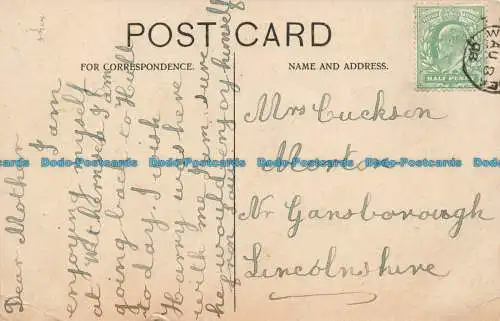 POST CARD
FOR CORRESPONDENCE.
NAME AND ADDRESS.
HALF PENNY
Dear Mother I am
enjoying myself
at Withernsea I am
going back to Hull
today. I wish
Harry was here
with me I am sure
he would enjoy himself
from
Mrs Cuckson
Morton
Nr Gansborough
Lincolnshire
Dodo-Postcards Dodo-Postcards Dodo-Postcards Dodo-Postcards Dodo-Postcards